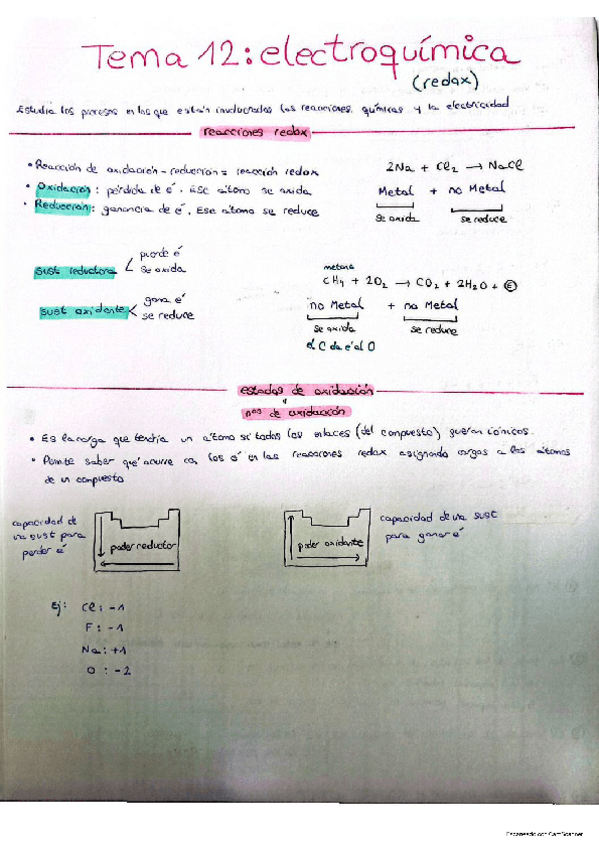 Tema 12: electroquímica
(redox)
Estudia los procesos en los que están involucradas las reacciones químicas y la electricidad
reacciones redox
• Reacción de oxidación - reducción = reacción redox
• Oxidación: pérdida de é. Ese átomo se oxida
• Reducción: ganancia de é. Ese átomo se reduce
2Na + Cl2 → NaCl
Metal + no Metal
se oxida se reduce
sust reductora < pierde é
se oxida
sust oxidante < gana é
se reduce
metano
CH4 + 2O2 → CO2 + 2H2O + E
no Metal + no Metal
se oxida se reduce
el C da é al O
estados de oxidación
y
nos de oxidación
• Es la carga que tendría un átomo si todos los enlaces (del compuesto) fueran iónicos.
• Permite saber qué ocurre con los é en las reacciones redox asignando cargas a los átomos
de un compuesto
capacidad de
una sust para
perder é
poder reductor
poder oxidante
capacidad de una sust
para ganar é
Ej: Cl: -1
F: -1
Na: +1
O: -2
Escaneado con CamScanner